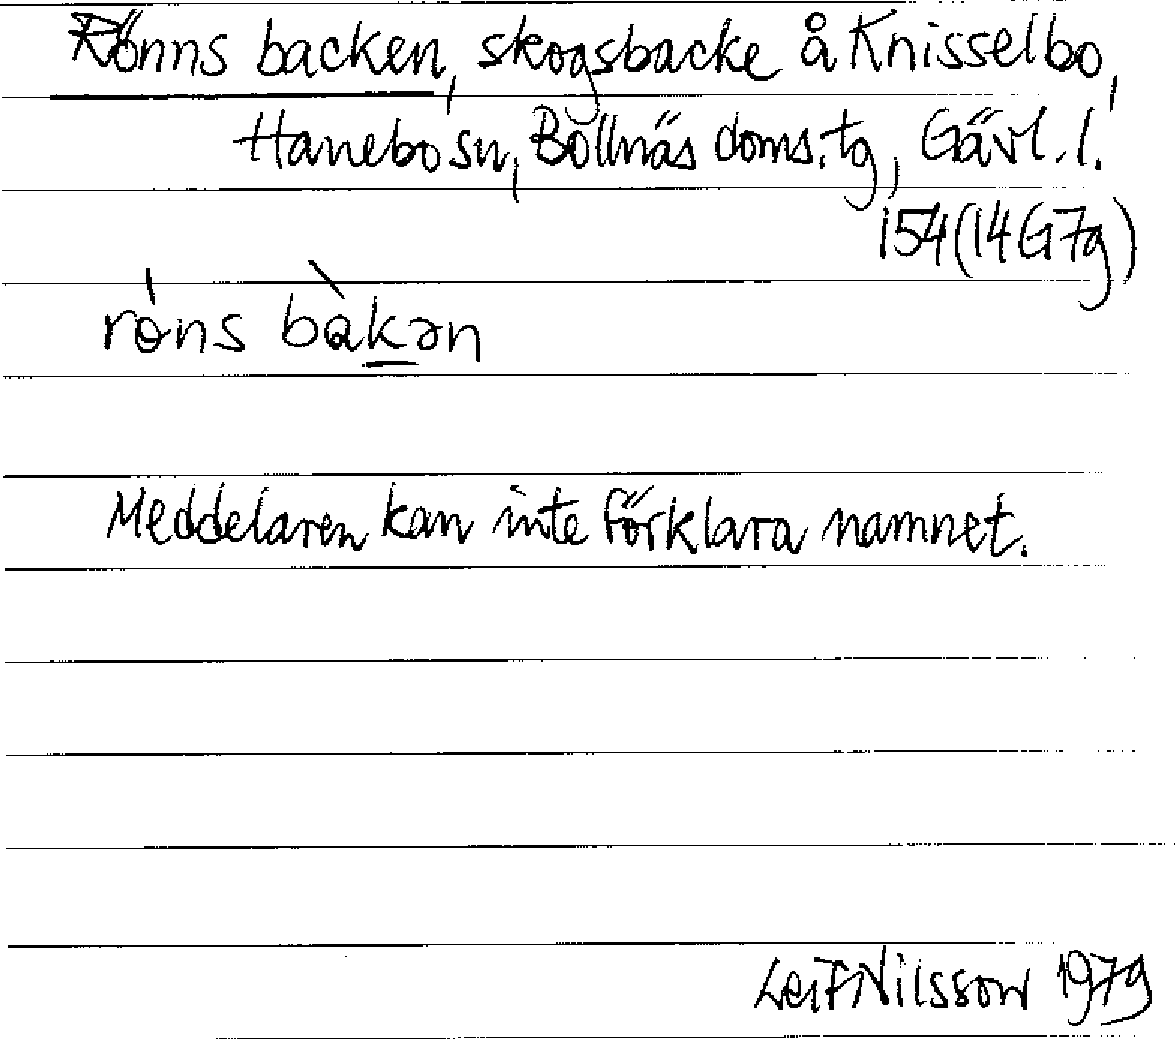 Rönns backen, skogsbacke å Knisselbo,
Hanebo sn, Bollnäs doms.tg, Gävl. l.
154 (14G7g)
röns bàkən
Meddelaren kan inte förklara namnet.
Leif Nilsson 1979